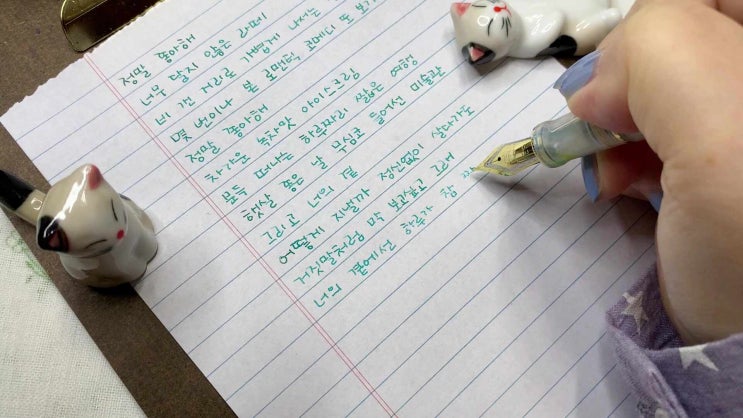 정말 좋아해
너무 달지 않은 라떼
비 갠 거리로 가볍게 나서는
몇 번이나 본 로맨틱 코메디 또 보기
정말 좋아해
차가운 녹차맛 아이스크림
문득 떠나는 하루짜리 짧은 여행
햇살 좋은 날 무심코 들어선 미술관
그리고 너의 곁
어떻게 지낼까 정신없이 살다가도
거짓말처럼 막 보고싶고 그래
너의 곁에서 하루가 참